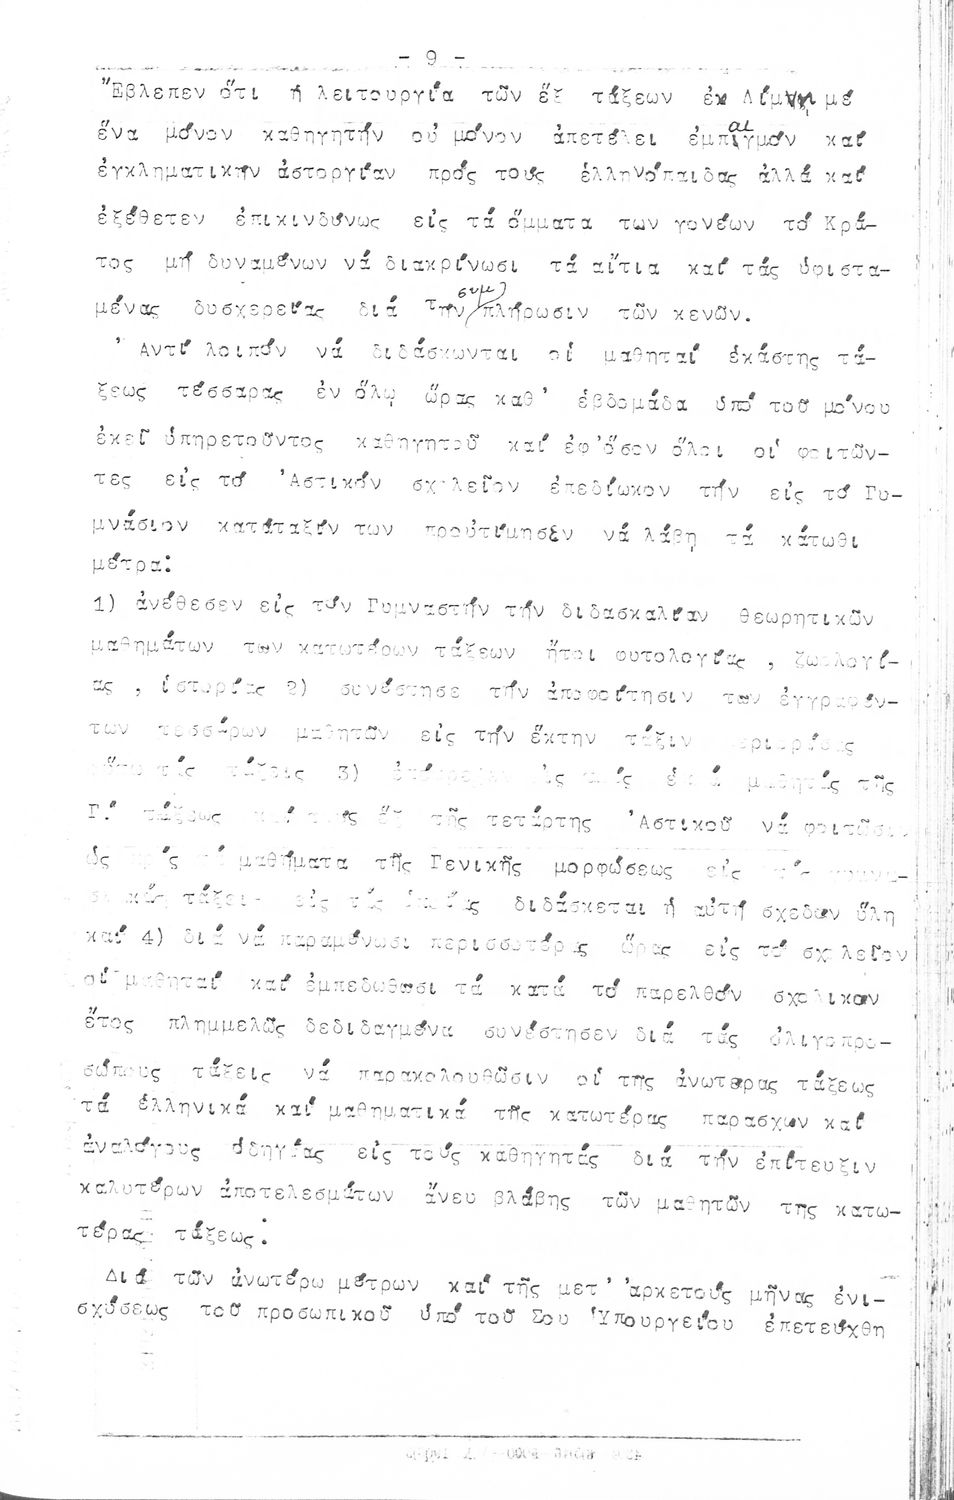 - 9 -
Ἔβλεπεν ὅτι ἡ λειτουργία τῶν ἕξ τάξεων ἐν Λίμνῃ μέ
ἕνα μόνον καθηγητήν οὐ μόνον ἀπετέλει ἐμπαιγμόν καί
ἐγκληματικήν ἀστοργίαν πρός τούς ἑλληνόπαιδας ἀλλά καί
ἐξέθετεν ἐπικινδύνως εἰς τά ὄμματα των γονέων τό Κρά-
τος μή δυναμένων νά διακρίνωσι τά αἴτια καί τάς ὑφιστα-
μένας δυσχερείας διά τήν συμπλήρωσιν τῶν κενῶν.
Ἀντί λοιπόν νά διδάσκωνται οἱ μαθηταί ἑκάστης τά-
ξεως τέσσαρας ἐν ὅλῳ ὥρας καθ' ἑβδομάδα ὑπό τοῦ μόνου
ἐκεῖ ὑπηρετοῦντος καθηγητοῦ καί ἐφ'ὅσον ὅλοι οἱ φοιτῶν-
τες εἰς τό Ἀστικόν σχολεῖον ἐπεδίωκον τήν εἰς τό Γυ-
μνάσιον κατάταξίν των προὐτίμησεν νά λάβῃ τά κάτωθι
μέτρα:
1) ἀνέθεσεν εἰς τόν Γυμναστήν τήν διδασκαλίαν θεωρητικῶν
μαθημάτων των κατωτέρων τάξεων ἤτοι φυτολογίας , ζωολογί-
ας , ἱστορίας 2) συνέστησε τήν ἀποφοίτησιν των ἐγγραφέν-
των τεσσάρων μαθητῶν εἰς τήν ἕκτην τάξιν περιορίσας
οὕτω τάς τάξεις 3) ἐπέτρεψεν εἰς τούς μαθητάς τῆς
Γ.' τάξεως καί τούς ἕξ τῆς τετάρτης Ἀστικοῦ νά φοιτῶσι
ὡς πρός τά μαθήματα τῆς Γενικῆς μορφώσεως εἰς τάς γυμνα-
σιακάς τάξεις εἰς τάς ὁποίας διδάσκεται ἡ αὐτή σχεδόν ὕλη
καί 4) διά νά παραμένωσι περισσοτέρας ὥρας εἰς τό σχολεῖον
οἱ μαθηταί καί ἐμπεδωθῶσι τά κατά τό παρελθόν σχολικόν
ἔτος πλημμελῶς δεδιδαγμένα συνέστησεν διά τάς ὀλιγοπρο-
σώπους τάξεις νά παρακολουθῶσιν οἱ της ἀνωτέρας τάξεως
τά ἑλληνικά καί μαθηματικά τῆς κατωτέρας παρασχών καί
ἀναλόγους ὁδηγίας εἰς τούς καθηγητάς διά τήν ἐπίτευξιν
καλυτέρων ἀποτελεσμάτων ἄνευ βλάβης τῶν μαθητῶν της κατω-
τέρας τάξεως.
Διά τῶν ἀνωτέρω μέτρων καί τῆς μετ' ἀρκετούς μῆνας ἐνι-
σχύσεως τοῦ προσωπικοῦ ὑπό τοῦ Σου Ὑπουργείου ἐπετεύχθη